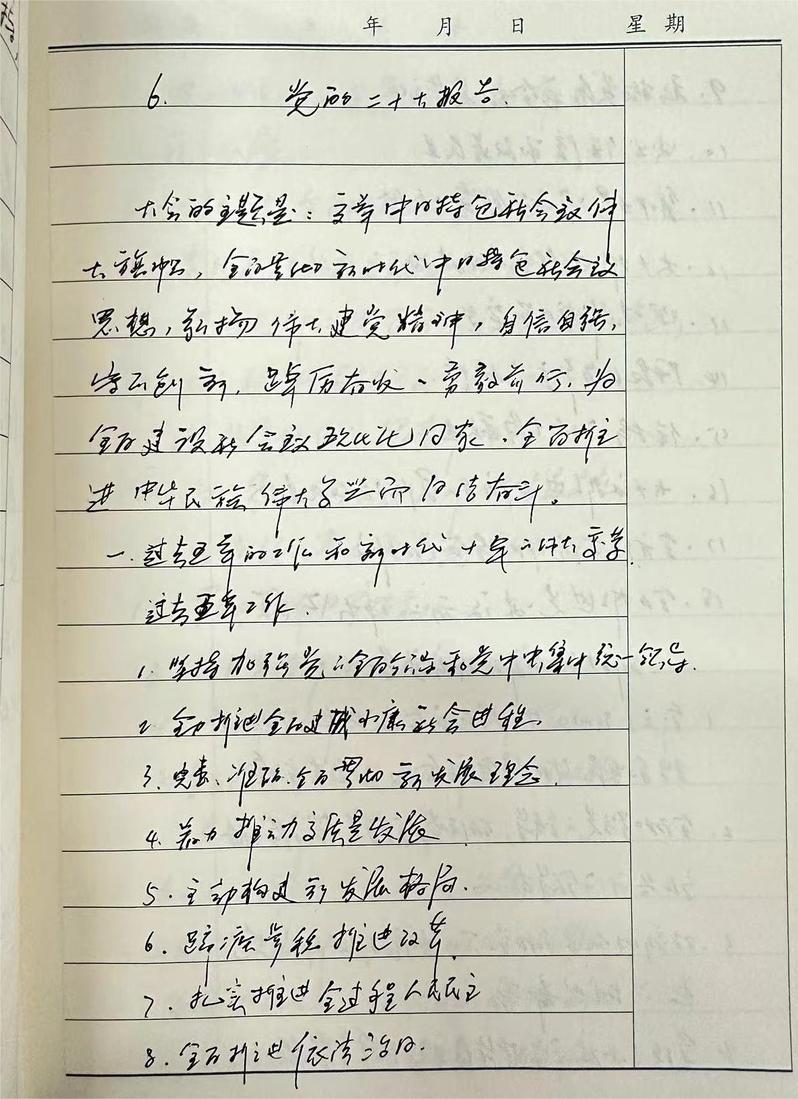 年 月 日 星期
6. 党的二十大报告.
大会的主题是：高举中国特色社会主义伟
大旗帜，全面贯彻新时代中国特色社会主义
思想，弘扬伟大建党精神，自信自强，
守正创新，踔厉奋发、勇毅前行，为
全面建设社会主义现代化国家、全面推
进中华民族伟大复兴而团结奋斗。
一.过去五年的工作和新时代十年的伟大变革.
过去五年工作.
1. 坚持加强党的全面领导和党中央集中统一领导.
2. 全力推进全面建成小康社会进程.
3. 完整、准确、全面贯彻新发展理念.
4. 着力推动高质量发展
5. 主动构建新发展格局.
6. 蹄疾步稳推进改革.
7. 扎实推进全过程人民民主
8. 全面推进依法治国.